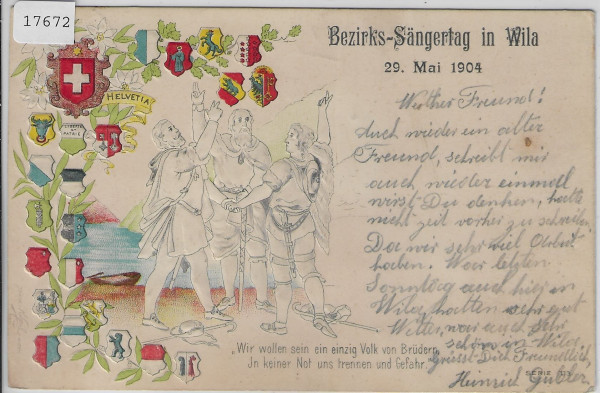 17672
Bezirks-Sängertag in Wila
29. Mai 1904
HELVETIA
LIBERTÉ ET PATRIE
Werther Freund!
Auch wieder ein alter
Freund, schreibt mir
auch wieder einmoll
wirst Du denken, hatte
nicht zeit vorher zu schreiben
Da wir sehr viel Arbeit
haben. War letzten
Sonntag auch hier in
Wila, hatten sehr gut
Wetter, war auch sehr
schön in Wila.
Grüsst Dich Freundlich
Heinrich Gubler
„Wir wollen sein ein einzig Volk von Brüdern,
In keiner Not uns trennen und Gefahr."
SERIE